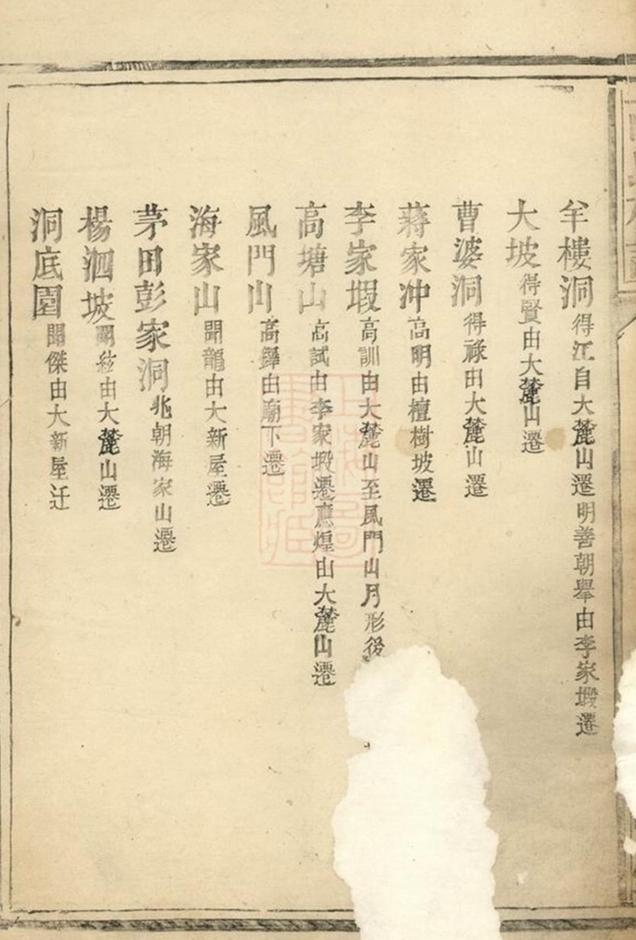 羊樓洞得江自大麓山遷明善朝舉由李家塅遷
大坡得賢由大麓山遷
曹婆洞得祿由大麓山遷
蔣家冲高明由檀樹坡遷
李家塅高訓由大麓山至風門山月形後
高塘山高試由李家塅遷應煌由大麓山遷
風門山高鐸由廟下遷
海家山開龍由大新屋遷
茅田彭家洞兆朝海家山遷
楊泗坡明紘由大麓山遷
洞底園開傑由大新屋迁